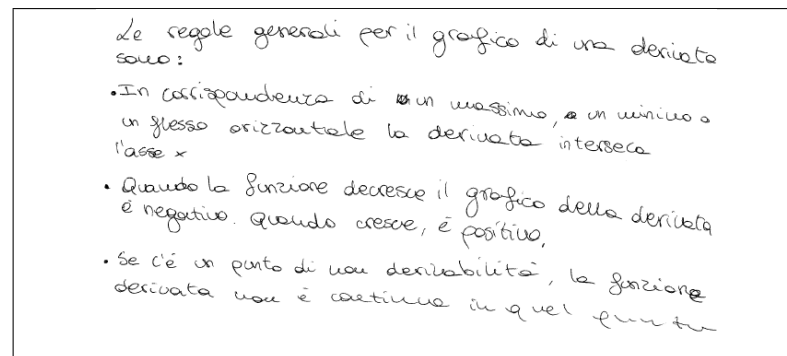 Le regole generali per il grafico di una derivata
sono:
• In corrispondenza di un massimo, o un minimo o
un flesso orizzontale la derivata interseca
l'asse x
• Quando la funzione decresce il grafico della derivata
é negativo. Quando cresce, é positivo.
• Se c'é un punto di non derivabilitá, la funzione
derivata non é continua in quel punto